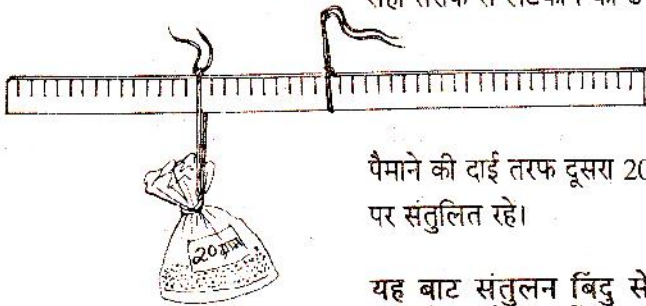 पैमाने की दाई तरफ दूसरा 20
पर संतुलित रहे।
यह बाट संतुलन बिंदु से
20 ग्राम